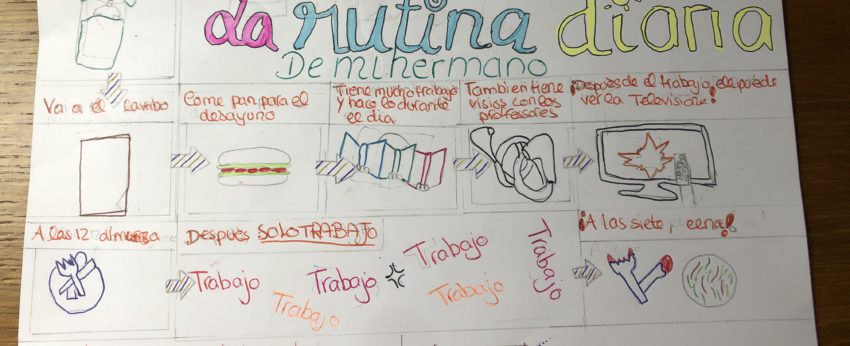 La rutina diaria
De mi hermano
Va a el lavabo
Come pan para el
desayuno
Tiene mucho trabajo
y hace lo durante
el dia
Tambien tiene
visios con los
professores
¡Después de el trabajo, ela puede
ver la Televisione!
A las 12 almuerza
Después SOLO TRABAJO
Trabajo
Trabajo
Trabajo
Trabajo
Trabajo
Trabajo
¡A las siete, cena!